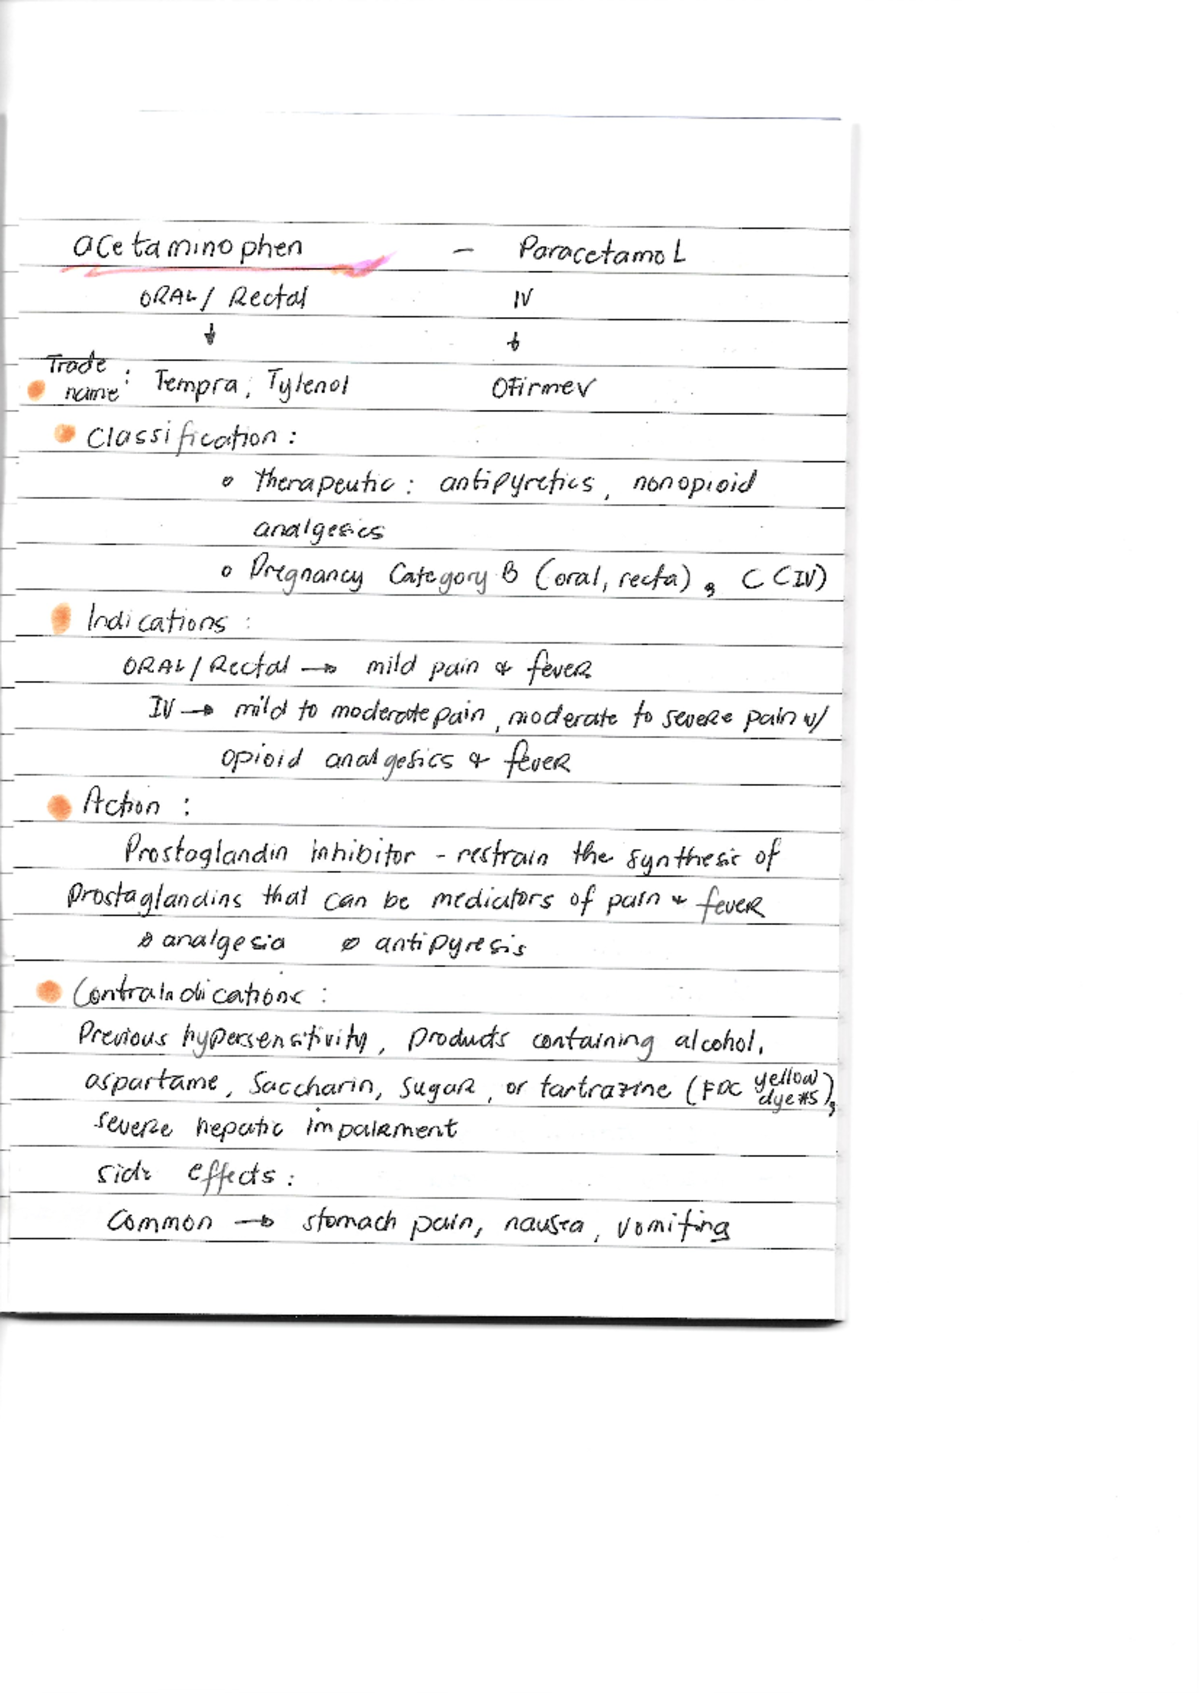 acetaminophen - Paracetamol
ORAL / Rectal IV
↓ ↓
Trade name : Tempra, Tylenol Ofirmev
Classification :
Therapeutic : antipyretics, nonopioid
analgesics
Pregnancy Category B (oral, recta), C (IV)
Indications :
ORAL / Rectal → mild pain & fever
IV → mild to moderate pain, moderate to severe pain w/
opioid analgesics & fever
Action :
Prostaglandin inhibitor - restrain the synthesis of
prostaglandins that can be mediators of pain & fever
analgesia antipyresis
Contraindications :
Previous hypersensitivity, products containing alcohol,
aspartame, saccharin, sugar, or tartrazine (FDC yellow dye #5),
severe hepatic impairment
side effects :
Common → stomach pain, nausea, vomiting